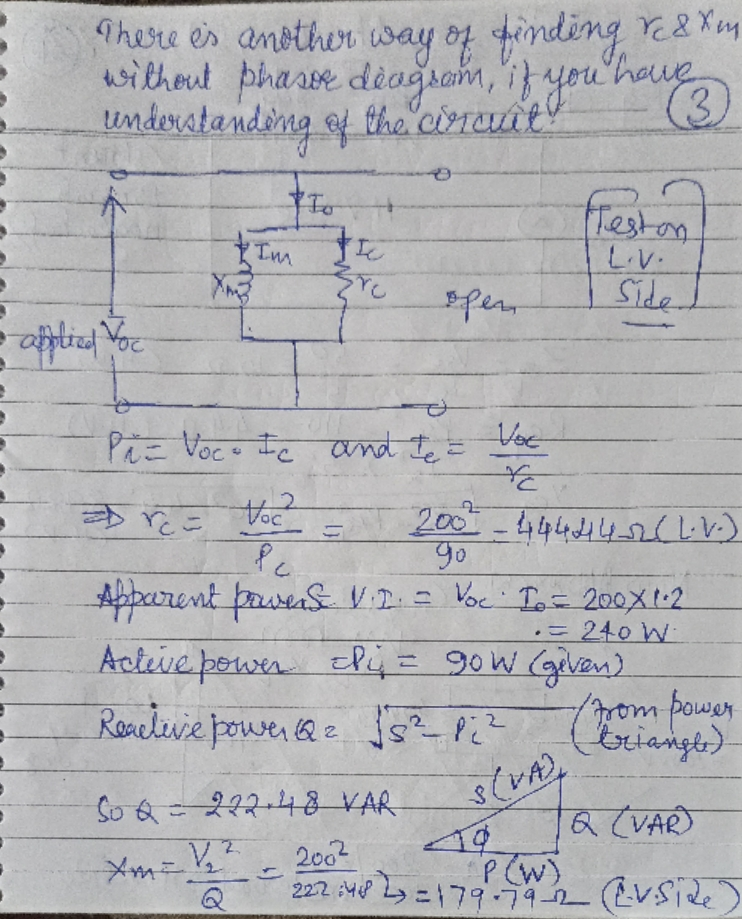 There is another way of finding rc & Xm
without phasor diagram, if you have
understanding of the circuit!
3
I₀
Im
Ic
Xm
rc
open
Test on
L.V.
Side
applied Voc
Pi = Voc · Ic and Ic = Voc / rc
⇒ rc = Voc² / Pc = 200² / 90 = 444.44 Ω (L.V.)
Apparent power S = V.I. = Voc · I₀ = 200 × 1.2
. = 240 W
Active power = Pi = 90 W (given)
Reactive power Q = √S² − Pi² (from power
triangle)
So Q = 222.48 VAR
S (VA)
Q (VAR)
ϕ
P (W)
Xm = V₂² / Q = 200² / 222.48 ↳ = 179.79 Ω (L.V. Side)